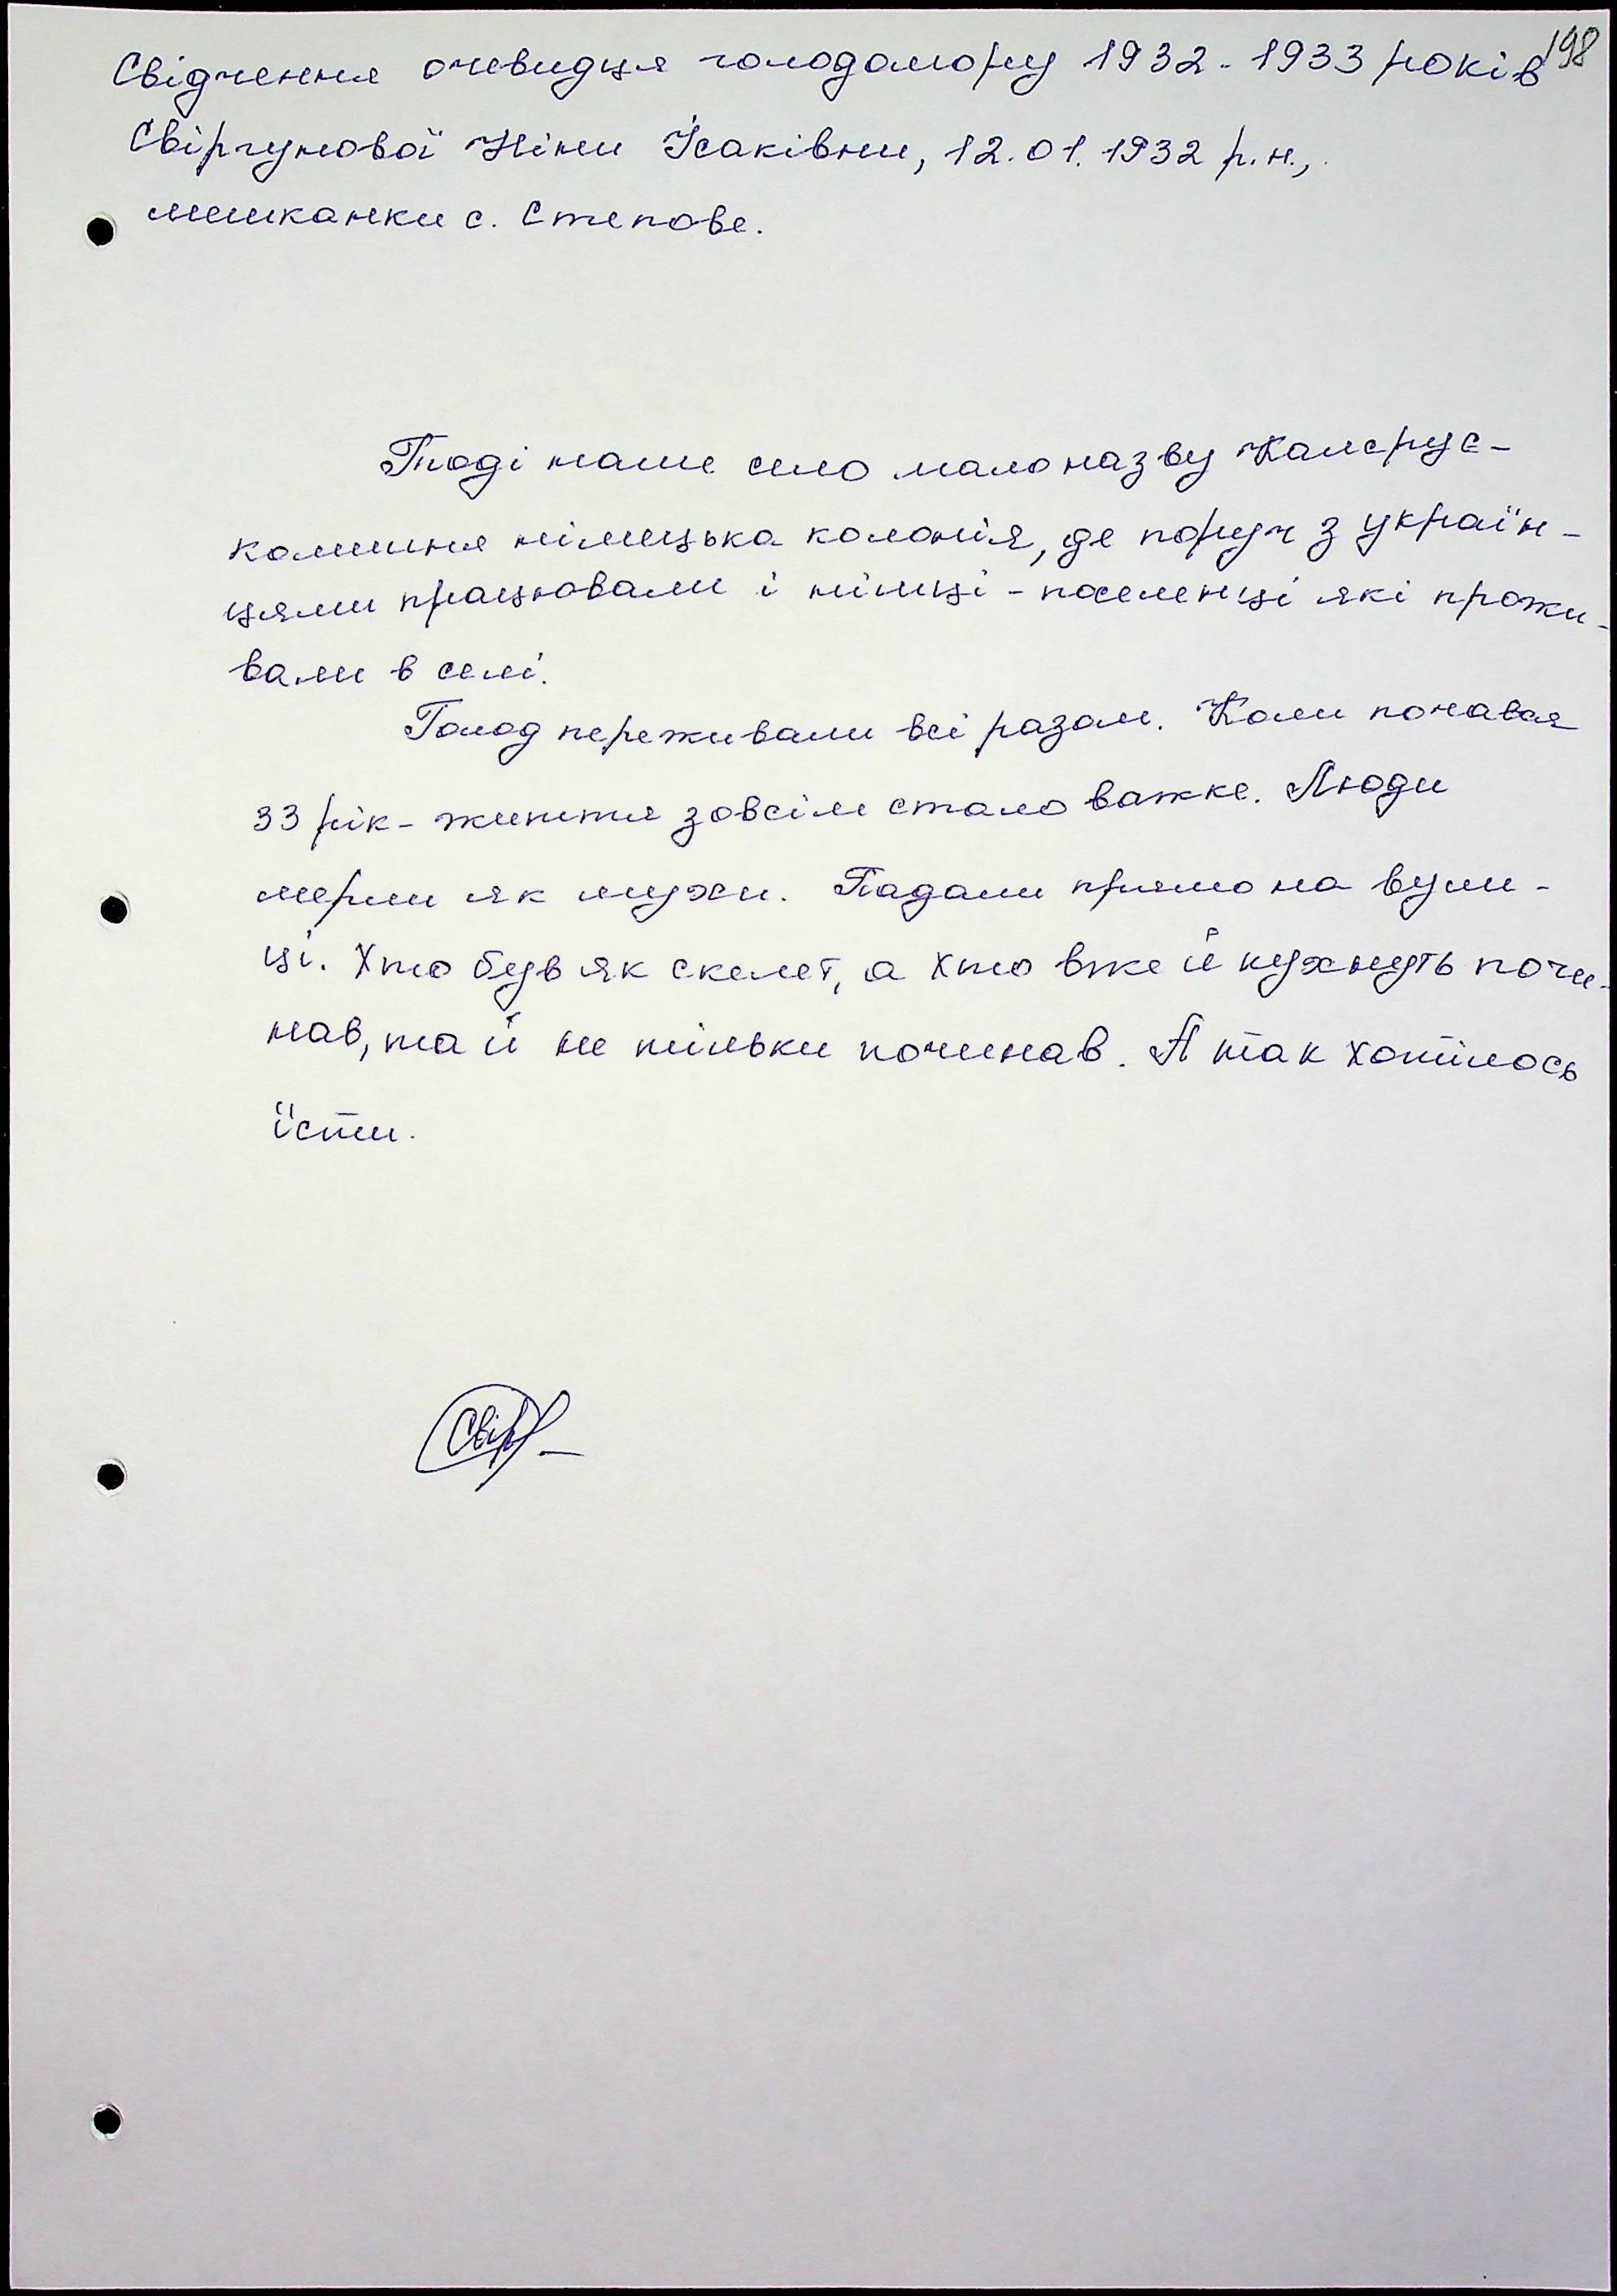 198
Свідчення очевидця голодомору 1932-1933 років
Свіргунової Ніни Ісаківни, 12.01.1932 р.н.,
мешканки с. Степове.
Тоді наше село мало назву Калсрує-
колишня німецька колонія, де поруч з україн-
цями працювали і німці - поселенці які прожи-
вали в селі.
Голод переживали всі разом. Коли почався
33 рік - життя зовсім стало важке. Люди
мерли як мухи. Падали прямо на вули-
ці. Хто був як скелет, а хто вже й пухнуть почи-
нав, та й не тільки починав. А так хотілось
їсти.